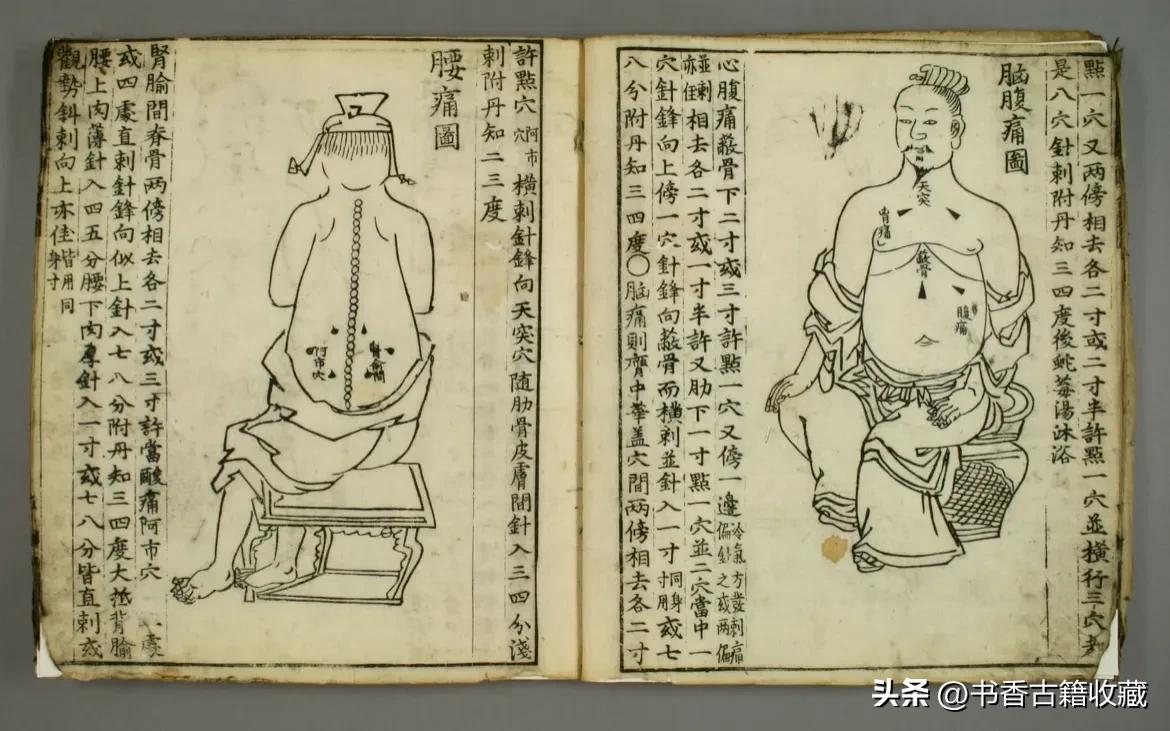 點一穴又兩傍相去各二寸或二寸半許點一穴並橫行三穴
是八穴針刺附丹知三四度後蚍莓湯沐浴
脑腹痛圖
天突
胷痛
蔽骨
腹痛
心腹痛蔽骨下二寸或三寸許點一穴又傍一邊冷氣方蹇刺痛偏針之或兩偏
並刺亦佳相去各二寸或一寸半許又肋下一寸點一穴並二穴當中一
穴針鋒向上傍一穴針鋒向蔽骨而橫刺並針入一寸同身寸用或七
八分附丹知三四度〇脑痛則膺中華盖穴間兩傍相去各二寸
許點穴阿市穴橫刺針鋒向天突穴随肋骨皮膚間針入三四分淺
刺附丹知二三度
腰痛圖
阿市穴
腎俞間
腎腧間脊骨兩傍相去各二寸或三寸許當酸痛阿市穴一處
或四處直刺針鋒向似上針入七八分附丹知三四度大抵背腧
腰上肉薄針入四五分腰下肉厚針入一寸或七八分皆直刺或
觀勢斜刺向上亦佳皆用同身寸
头条 @书香古籍收藏